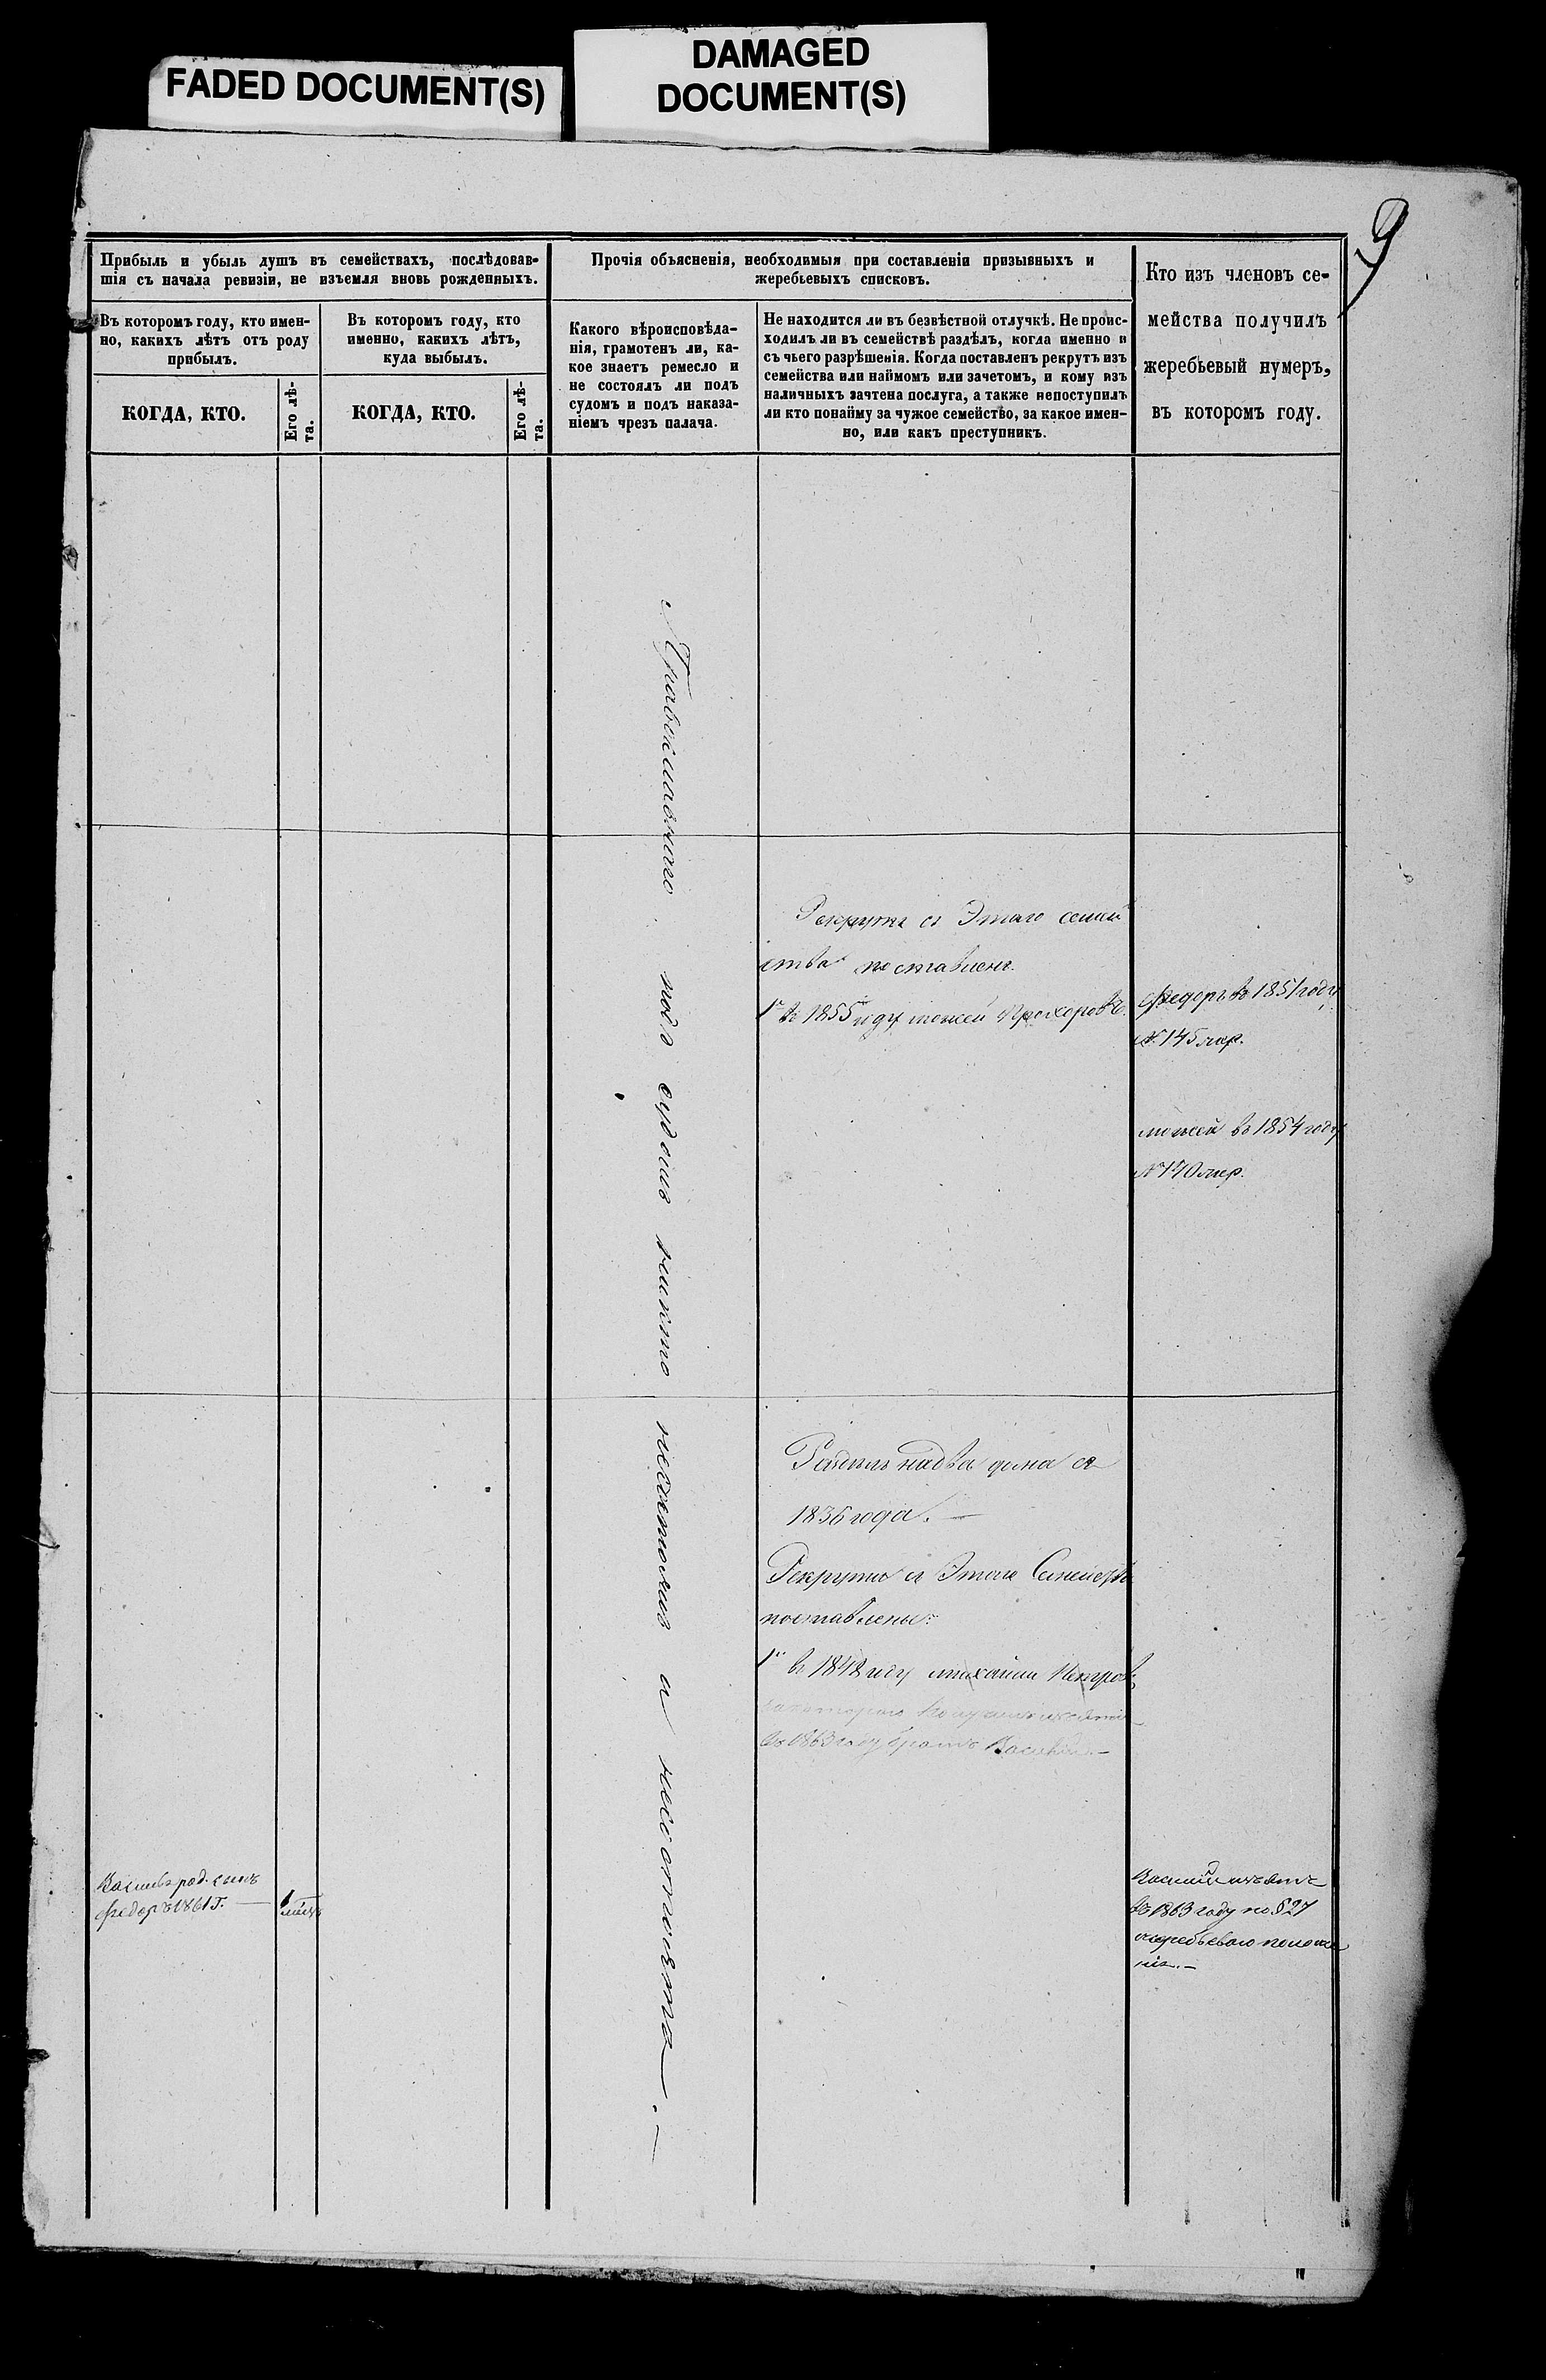 FADED DOCUMENT(S)
DAMAGED
DOCUMENT(S)
9
Прибыль и убыль душъ въ семействахъ, послѣдовав-
шія съ начала ревизіи, не изъемля вновь рожденныхъ.
Въ которомъ году, кто имен-
но, какихъ лѣтъ отъ роду
прибылъ.
КОГДА, КТО.
Его лѣ-
та.
Въ которомъ году, кто
именно, какихъ лѣтъ,
куда выбылъ.
КОГДА, КТО.
Его лѣ-
та.
Прочія объясненія, необходимыя при составленіи призывныхъ и
жеребьевыхъ списковъ.
Какого вѣроисповѣда-
нія, грамотенъ ли, ка-
кое знаетъ ремесло и
не состоялъ ли подъ
судомъ и подъ наказа-
ніемъ чрезъ палача.
Не находится ли въ безвѣстной отлучкѣ. Не проис-
ходилъ ли въ семействѣ раздѣлъ, когда именно и
съ чьего разрѣшенія. Когда поставленъ рекрутъ изъ
семейства или наймомъ или зачетомъ, и кому изъ
наличныхъ зачтена послуга, а также непоступилъ
ли кто понайму за чужое семейство, за какое имен-
но, или какъ преступникъ.
Кто изъ членовъ се-
мейства получилъ
жеребьевый нумеръ,
въ которомъ году.
подъ судомъ никто несостоялъ и несостоитъ.—
Рекрутъ съ Этаго семей
ства поставленъ.
1й въ 1855 году Прохоровъ.
Федоръ въ 1851 году
№ 145 жер.
въ 1854 году
№ 140 жер.
Раздѣлъ на два дома съ
1836 года.—
Рекруты съ Этаго Семейства
поставлены:
1й въ 1848 году Михаилъ Петровъ
въ 1863 году братъ Василій.—
Василь. род. сынъ
Федоръ 1861 г. —
1
Василій
въ 1863 году по § 27
жеребьеваго положе
нія.—